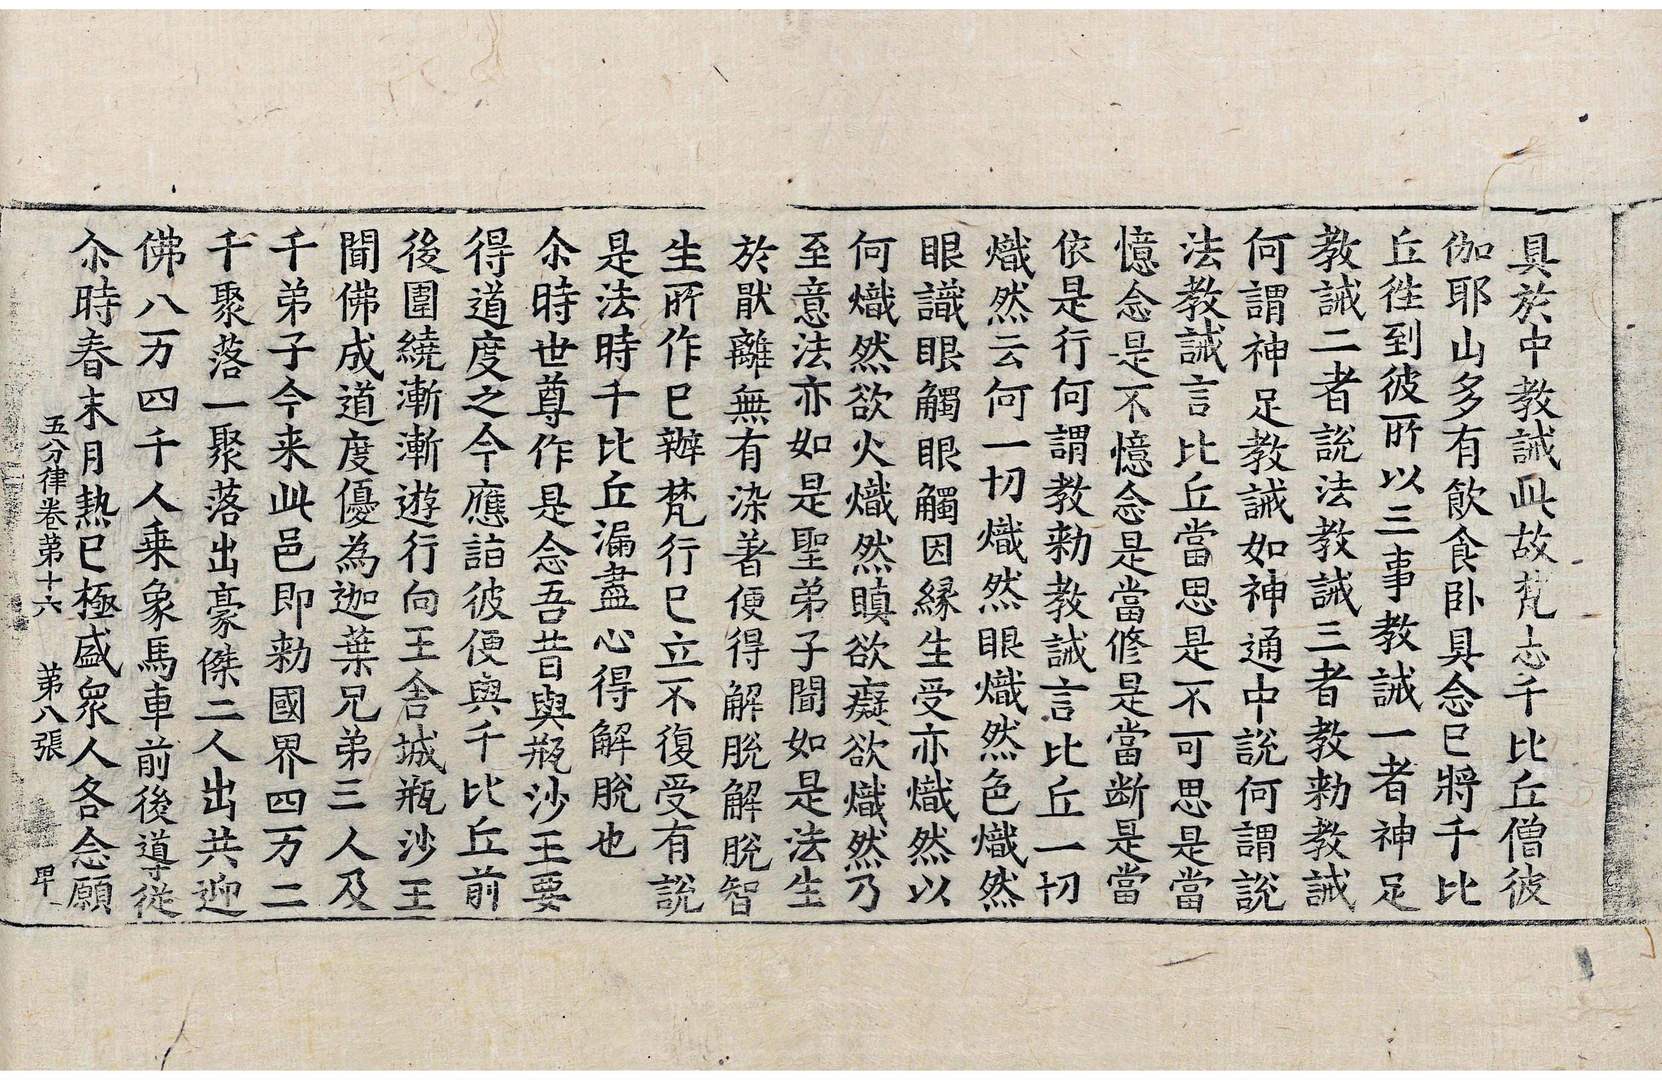 具於中教誡此故梵志千比丘僧彼
伽耶山多有飲食卧具念已將千比
丘徃到彼所以三事教誡一者神足
教誡二者說法教誡三者教勑教誡
何謂神足教誡如神通中說何謂說
法教誡言比丘當思是不可思是當
憶念是不憶念是當修是當断是當
依是行何謂教勑教誡言比丘一切
熾然云何一切熾然眼熾然色熾然
眼識眼觸眼觸因縁生受亦熾然以
何熾然欲火熾然瞋欲癡欲熾然乃
至意法亦如是聖弟子聞如是法生
於猒離無有染著便得解脫解脫智
生所作已辦梵行已立不復受有說
是法時千比丘漏盡心得解脫也
尒時世尊作是念吾昔與瓶沙王要
得道度之今應詣彼便與千比丘前
後圍繞漸漸遊行向王舍城瓶沙王
聞佛成道度優為迦葉兄弟三人及
千弟子今来此邑即勑國界四万二
千聚落一聚落出豪傑二人出共迎
佛八万四千人乗象馬車前後導從
尒時春末月熱已極盛衆人各念願
五分律卷第十六 第八張 甲